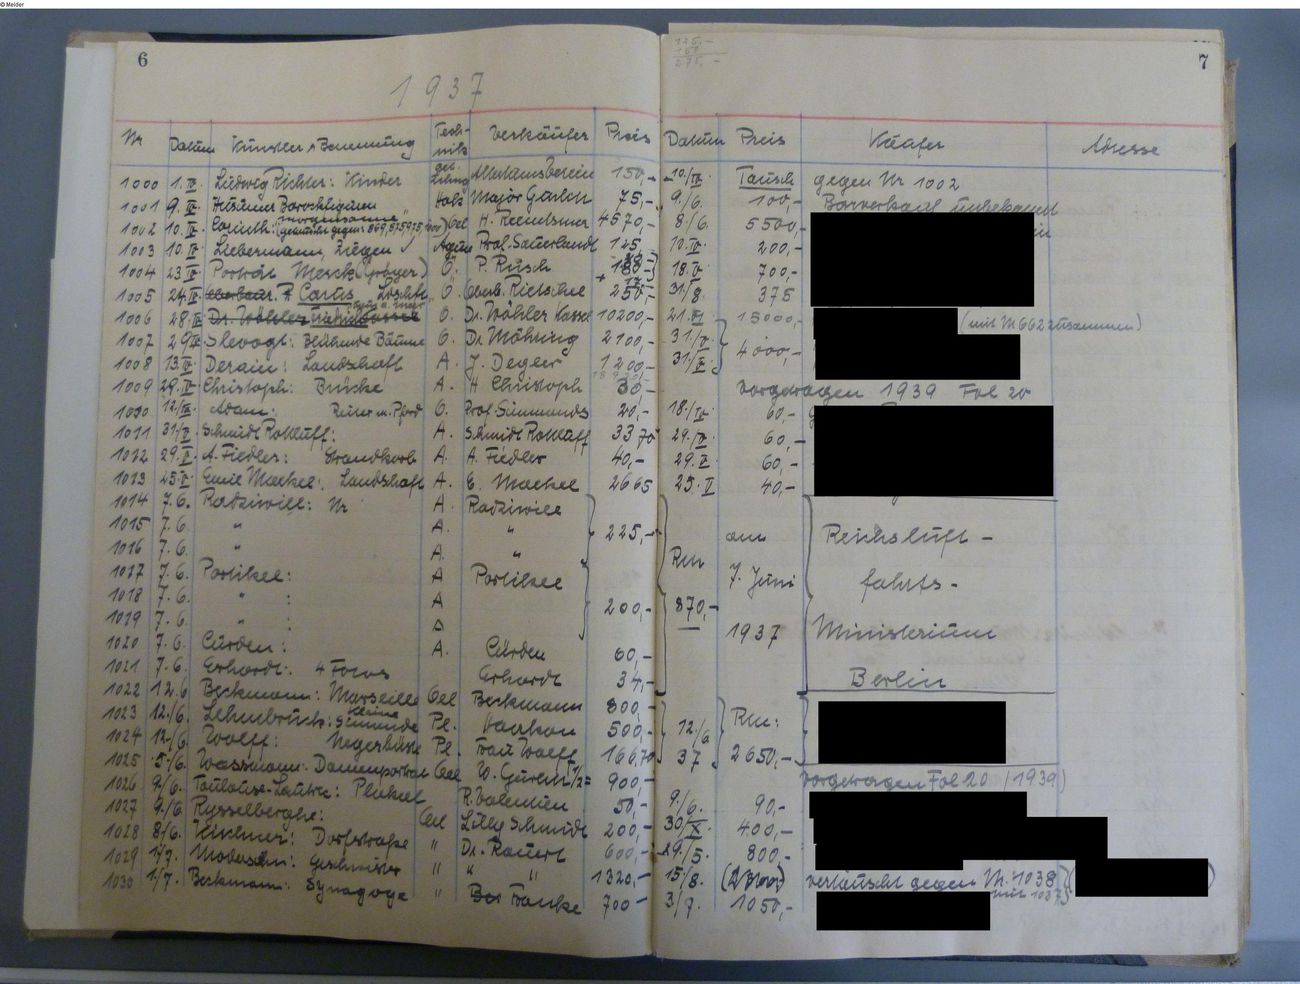 © Melder
6
7
125,-
275,-
1937
Nr Datum Künstler & Benennung Technik Verkäufer Preis Datum Preis Käufer Adresse
1000 1.IV. Ludwig Richter: Kinder 150,- Tausch gegen Nr 1002
1001 9.IV. Holz Major 75,- 9./6. 100,- Barverkauf unbekannt
1002 10.IV. Corinth: Oel H. Reemtsma 4570,- 8/6. 5500,-
1003 10.IV. Liebermann, Aqua Prof. Sauerlandt 125,- 10.IV. 200,-
1004 23.IV. Porträt (Gröger) O. P. Rüsch 18.IV. 700,-
1005 24.IV. O. Oberb. Rietschel 250,- 31/8. 375
1006 28.IV. Dr. Wöhler O. Dr. Wöhler Kassel 10200,- 21.VI 15000,- (mit Nr 662 zusammen)
1007 29.IV. Slevogt: Blühende Bäume O. Dr. Möhring 2100,- 31./V. 4000,-
1008 13.IV. Derain: Landschaft A. J. Degler 1200,- 31/V.
1009 29.IV. Christoph: Brücke A. H Christoph 30,- vorgetragen 1939 Fol 20
1010 12./IV. Adam: Reiter u. Pferd O. Prof. 20,- 18./IV. 60,-
1011 31/V. Schmidt Rottluff: A. Schmidt Rottluff 33 70 29./V. 60,-
1012 29.V. A. Fiedler: Strandkorb A. A. Fiedler 40,- 29.V. 60,-
1013 25.V. Emil Maetzel: Landschaft A. E. Maetzel 26 65 25.V 40,-
1014 7.6. Radziwill: Nr A. Radziwill
1015 7.6. " A. " 225,- am Reichsluft-
1016 7.6. " A. "
1017 7.6. Partikel: A Partikel Rm 7. Juni fahrts-
1018 7.6. " : A 200,- 870,-
1019 7.6. " : A 1937 Ministerium
1020 7.6. Cürden: A. Cürden 60,-
1021 7.6. Erhardt: 4 Fotos Erhardt 34,- Berlin
1022 12.6 Beckmann: Marseille Oel Beckmann 800,-
1023 12./6. Lehmbruck: kleine Sinnende Pl. 500,- 12./6. Rm:
1024 12./6. Wolff: Negerbüste Pl. Frau Wolff 166 70 37 2650,-
1025 5./6. Wassmann: Damenportrait Oel W. Gurlitt 1/2 = 900,- vorgetragen Fol 20 (1939)
1026 9./6. Toulouse-Lautrec: Plakat R. Valentien 50,- 9./6. 90,-
1027 9./6. Rysselberghe: Oel Lilly Schmidt 200,- 30/X. 400,-
1028 8/6. Kirchner: Dorfstraße " Dr. Rauert 600,- 29./5. 800,-
1029 1/7. Modersohn: Geschwister " " " 1320,- 15/8. vertauscht gegen Nr. 1038 mit 1037
1030 1/7. Beckmann: Synagoge " Franke 700- 3/7. 1050,-